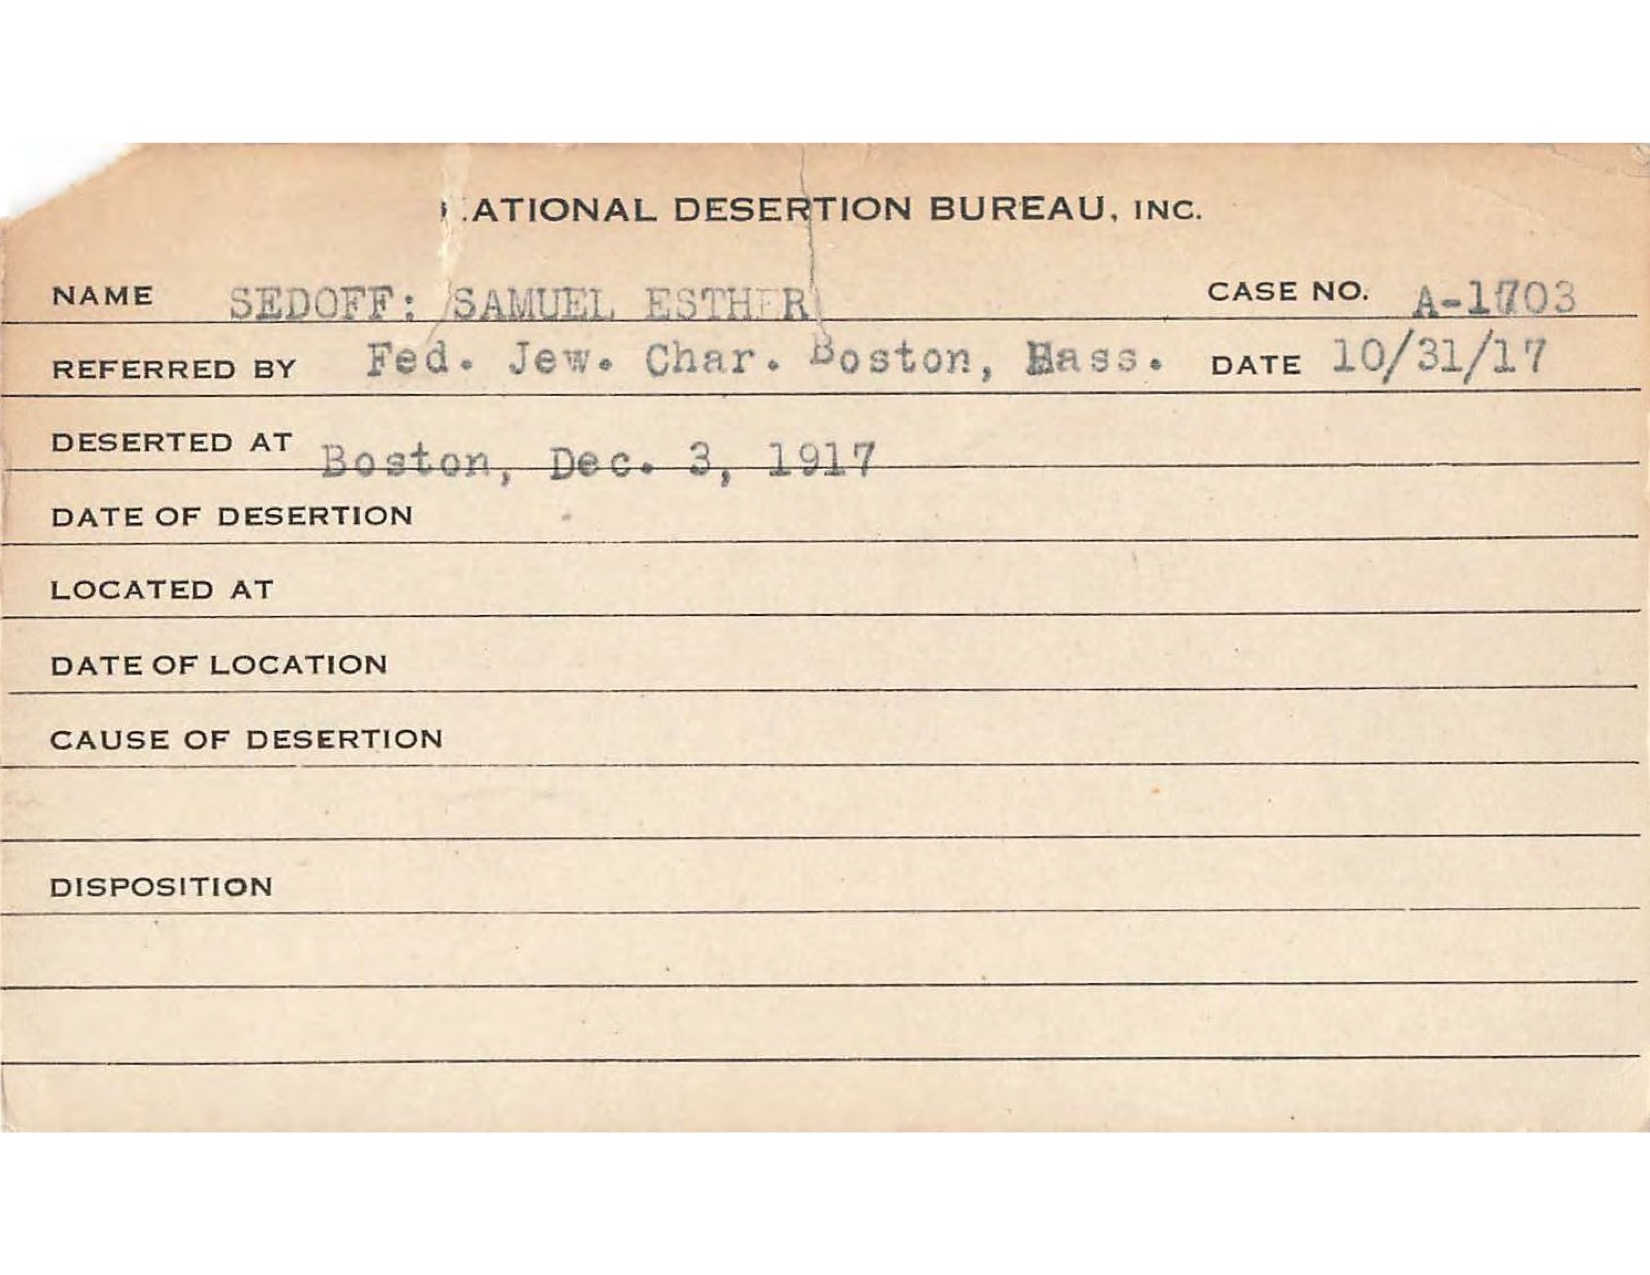 NATIONAL DESERTION BUREAU, INC.
NAME SEDOFF: SAMUEL ESTHER CASE NO. A-1703
REFERRED BY Fed. Jew. Char. Boston, Mass. DATE 10/31/17
DESERTED AT Boston, Dec. 3, 1917
DATE OF DESERTION
LOCATED AT
DATE OF LOCATION
CAUSE OF DESERTION
DISPOSITION